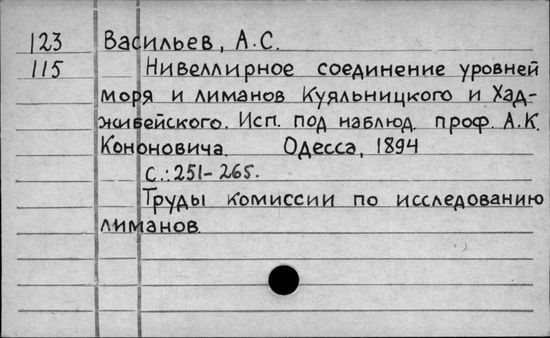 123 Васильев, А.С.
115 Нивеллирное соединение уровней
моря и лиманов Куяльницкого и Хад-
жибейского. Исп. под наблюд. проф. А.К.
Кононовича. Одесса, 1894
С.: 251-265.
Труды комиссии по исследованию
лиманов.